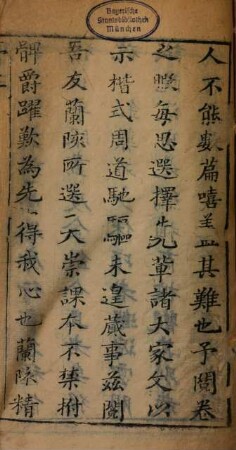 Bayerische
Staatsbibliothek
München
人不能數篇嘻其難也予閱卷
之暇每思選擇先輩諸大家文以
示楷式周道馳驅未遑蕆事茲閱
吾友蘭陔所選二大崇課本不禁拊
髀爵躍歎為先得我心也蘭陔精